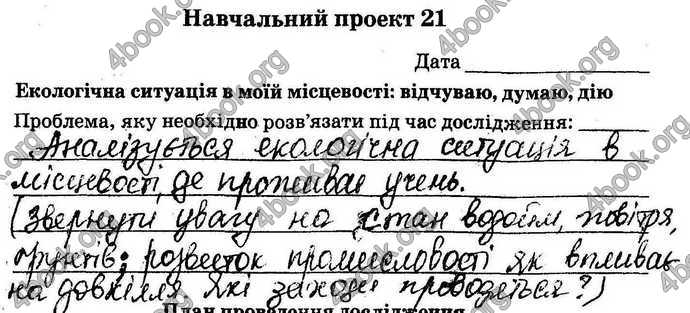 Навчальний проект 21
Дата
Екологічна ситуація в моїй місцевості: відчуваю, думаю, дію
Проблема, яку необхідно розв'язати під час дослідження:
Аналізується екологічна ситуація в
місцевості, де проживає учень.
(Звернути увагу на стан водойм, повітря,
ґрунтів; розвиток промисловості як впливає
на довкілля, які заходи проводяться?)
План проведення дослідження
4book.org